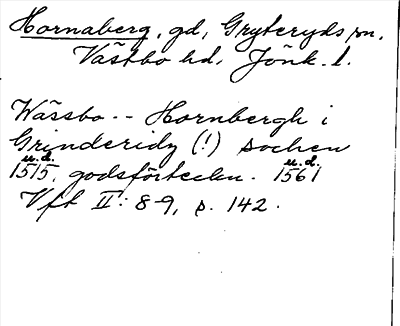 Hornaberg, gd, Gryteryds sn,
Västbo hd, Jönk. l.
Wässbo -- Hornbergh i
Grinderidz (!) sochen
u.d. u.d.
1515, godsförteckn. 1561
Vft II: 8-9, s. 142.